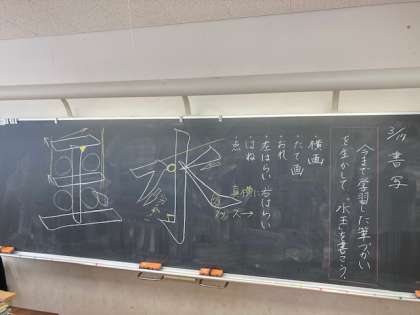 3/17 書写
今まで学習した筆づかい
を生かして、"水玉"を書こう。
・横画
・たて画
・おれ
・左はらい 右はらい
・はね
・点
水